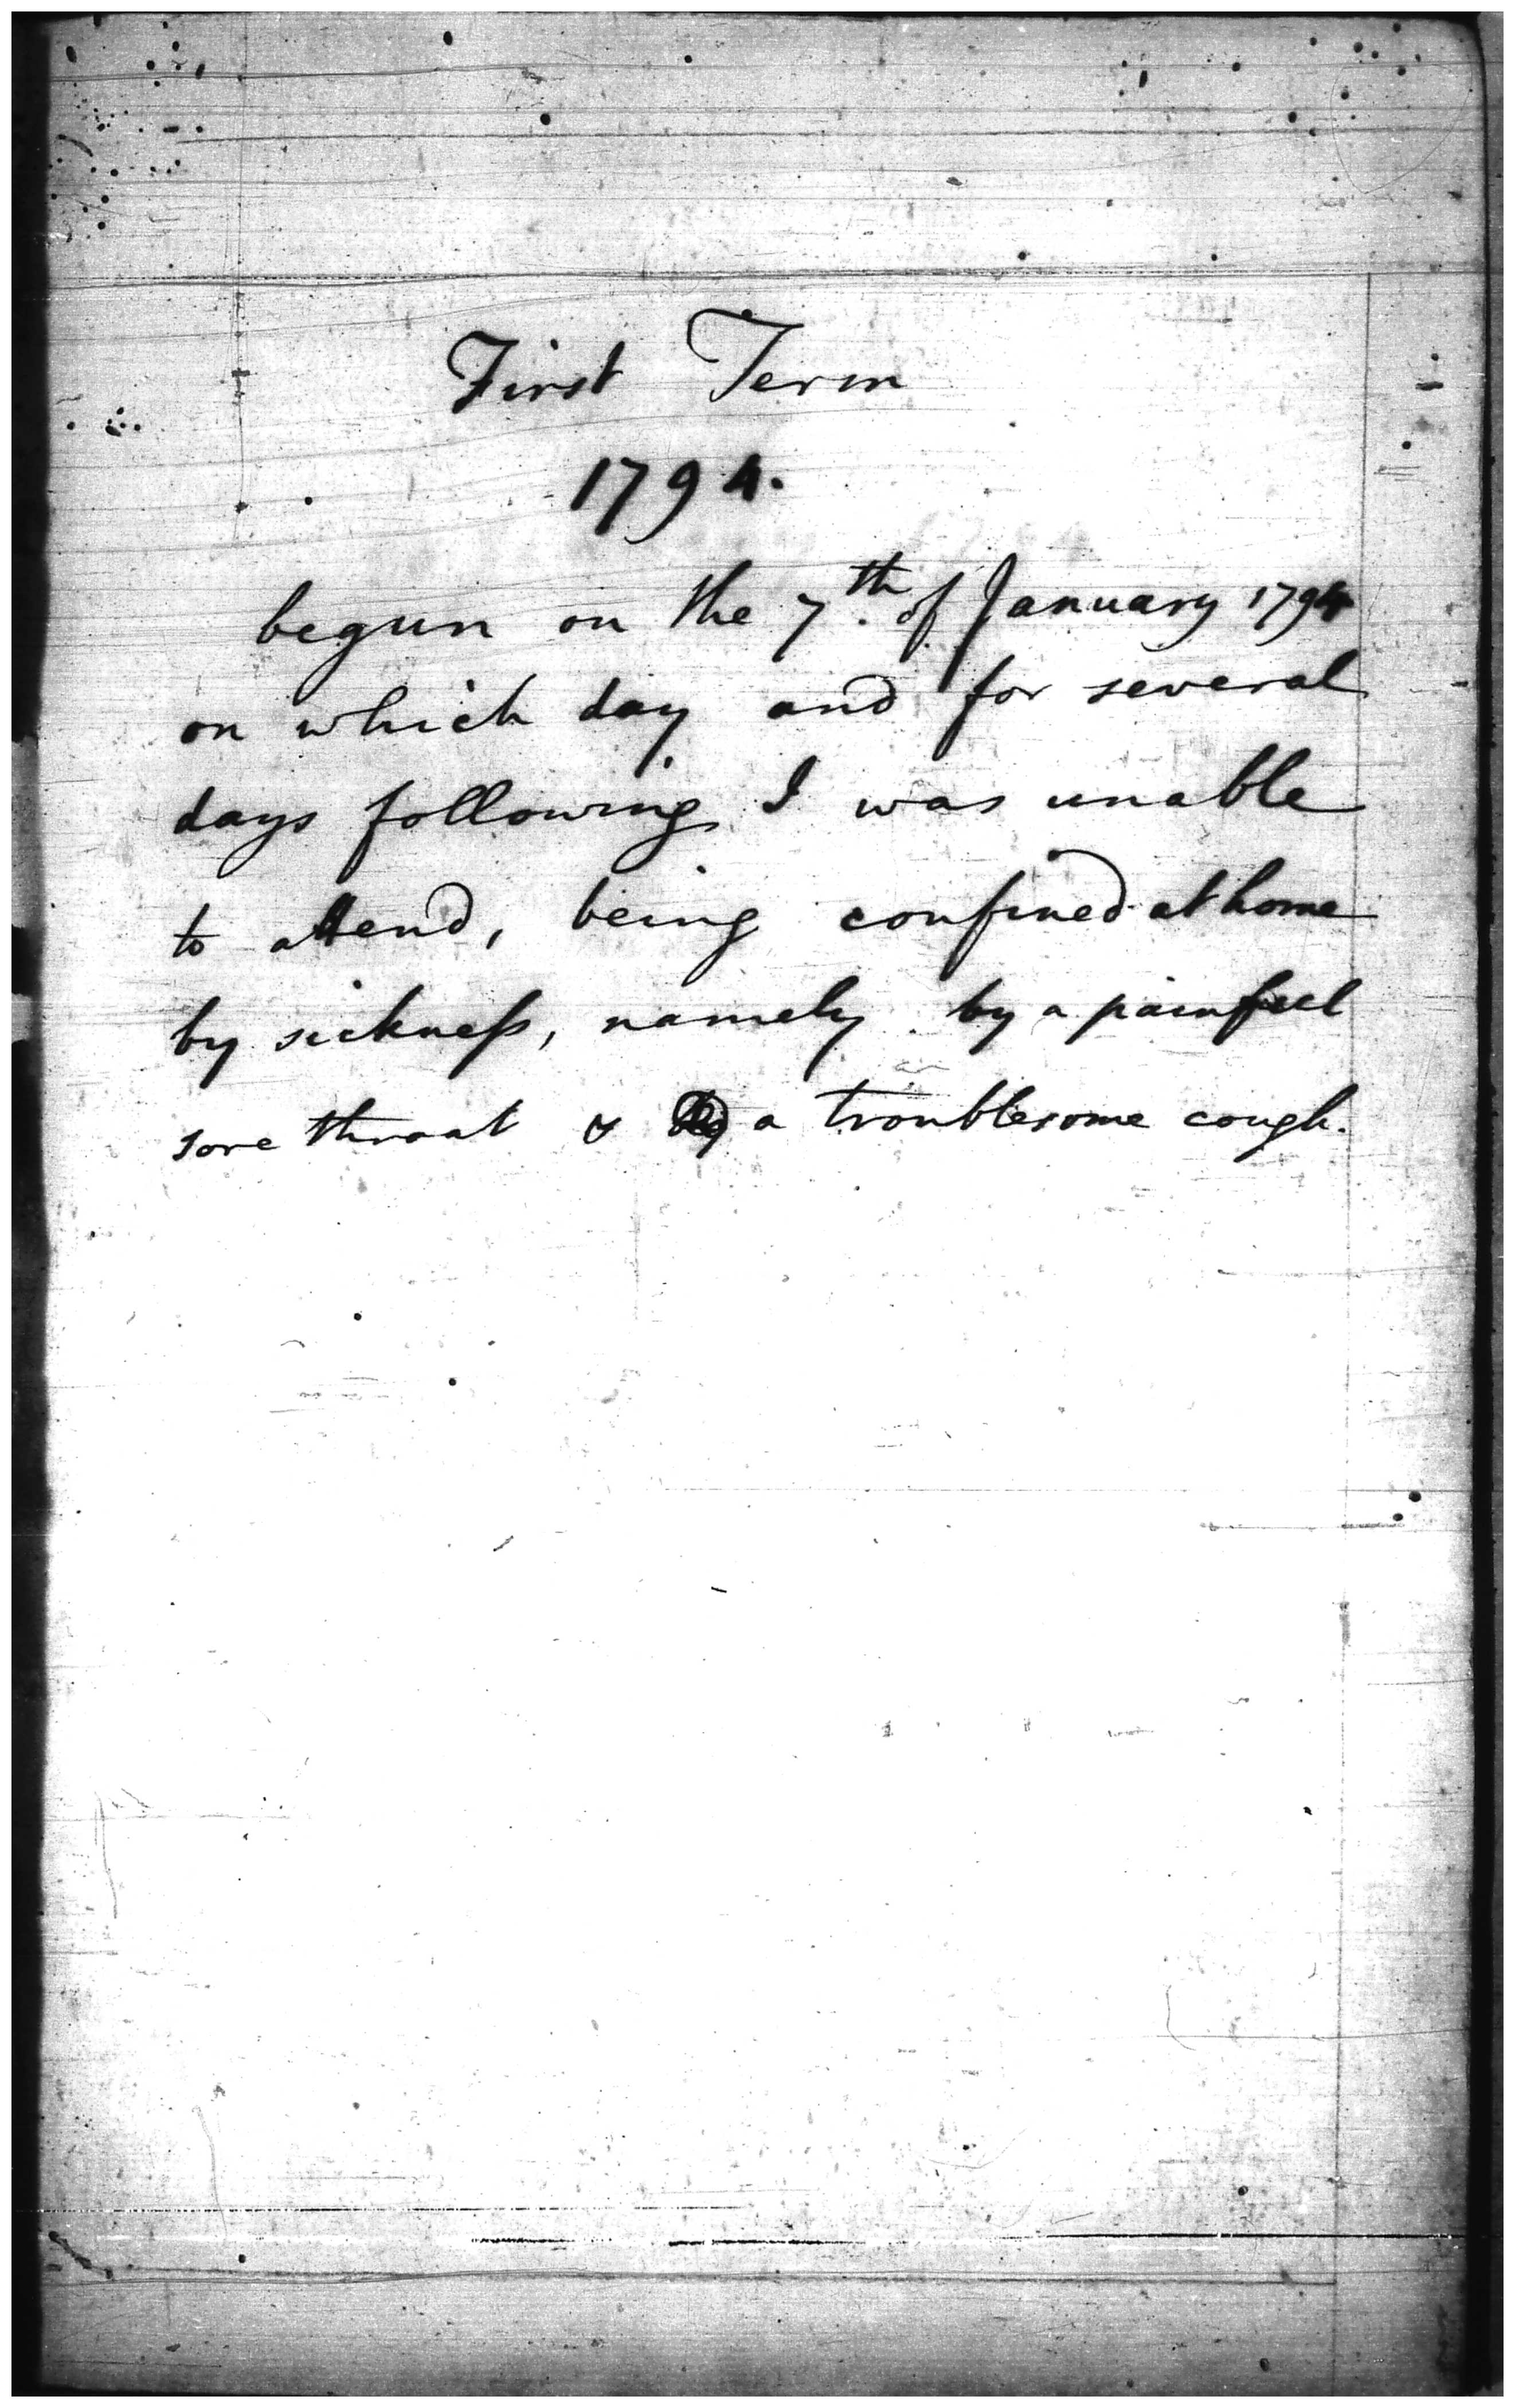 First Term
1794.
begun on the 7th. of January 1794
on which day and for several
days following I was unable
to attend, being confined at home
by sickneſs, namely by a painful
sore throat & a troublesome cough.